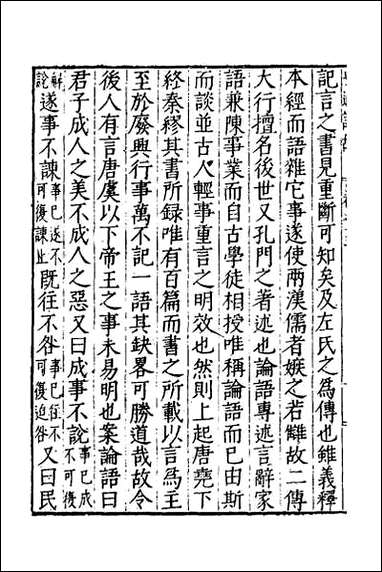 記言之書見重斷可知矣及左氏之爲傳也雖義釋
本經而語雜它事遂使兩漢儒者嫉之若讎故二傳
大行擅名後世又孔門之著述也論語專述言辭家
語兼陳事業而自古學徒相授唯稱論語而已由斯
而談並古人輕事重言之明效也然則上起唐堯下
終秦繆其書所録唯有百篇而書之所載以言爲主
至於廢興行事萬不記一語其缺畧可勝道哉故令
後人有言唐虞以下帝王之事未易明也案論語曰
君子成人之美不成人之惡又曰成事不說事已成不可復
解說遂事不諫事已遂不可復諫止既往不咎事已往不可復追咎又曰民